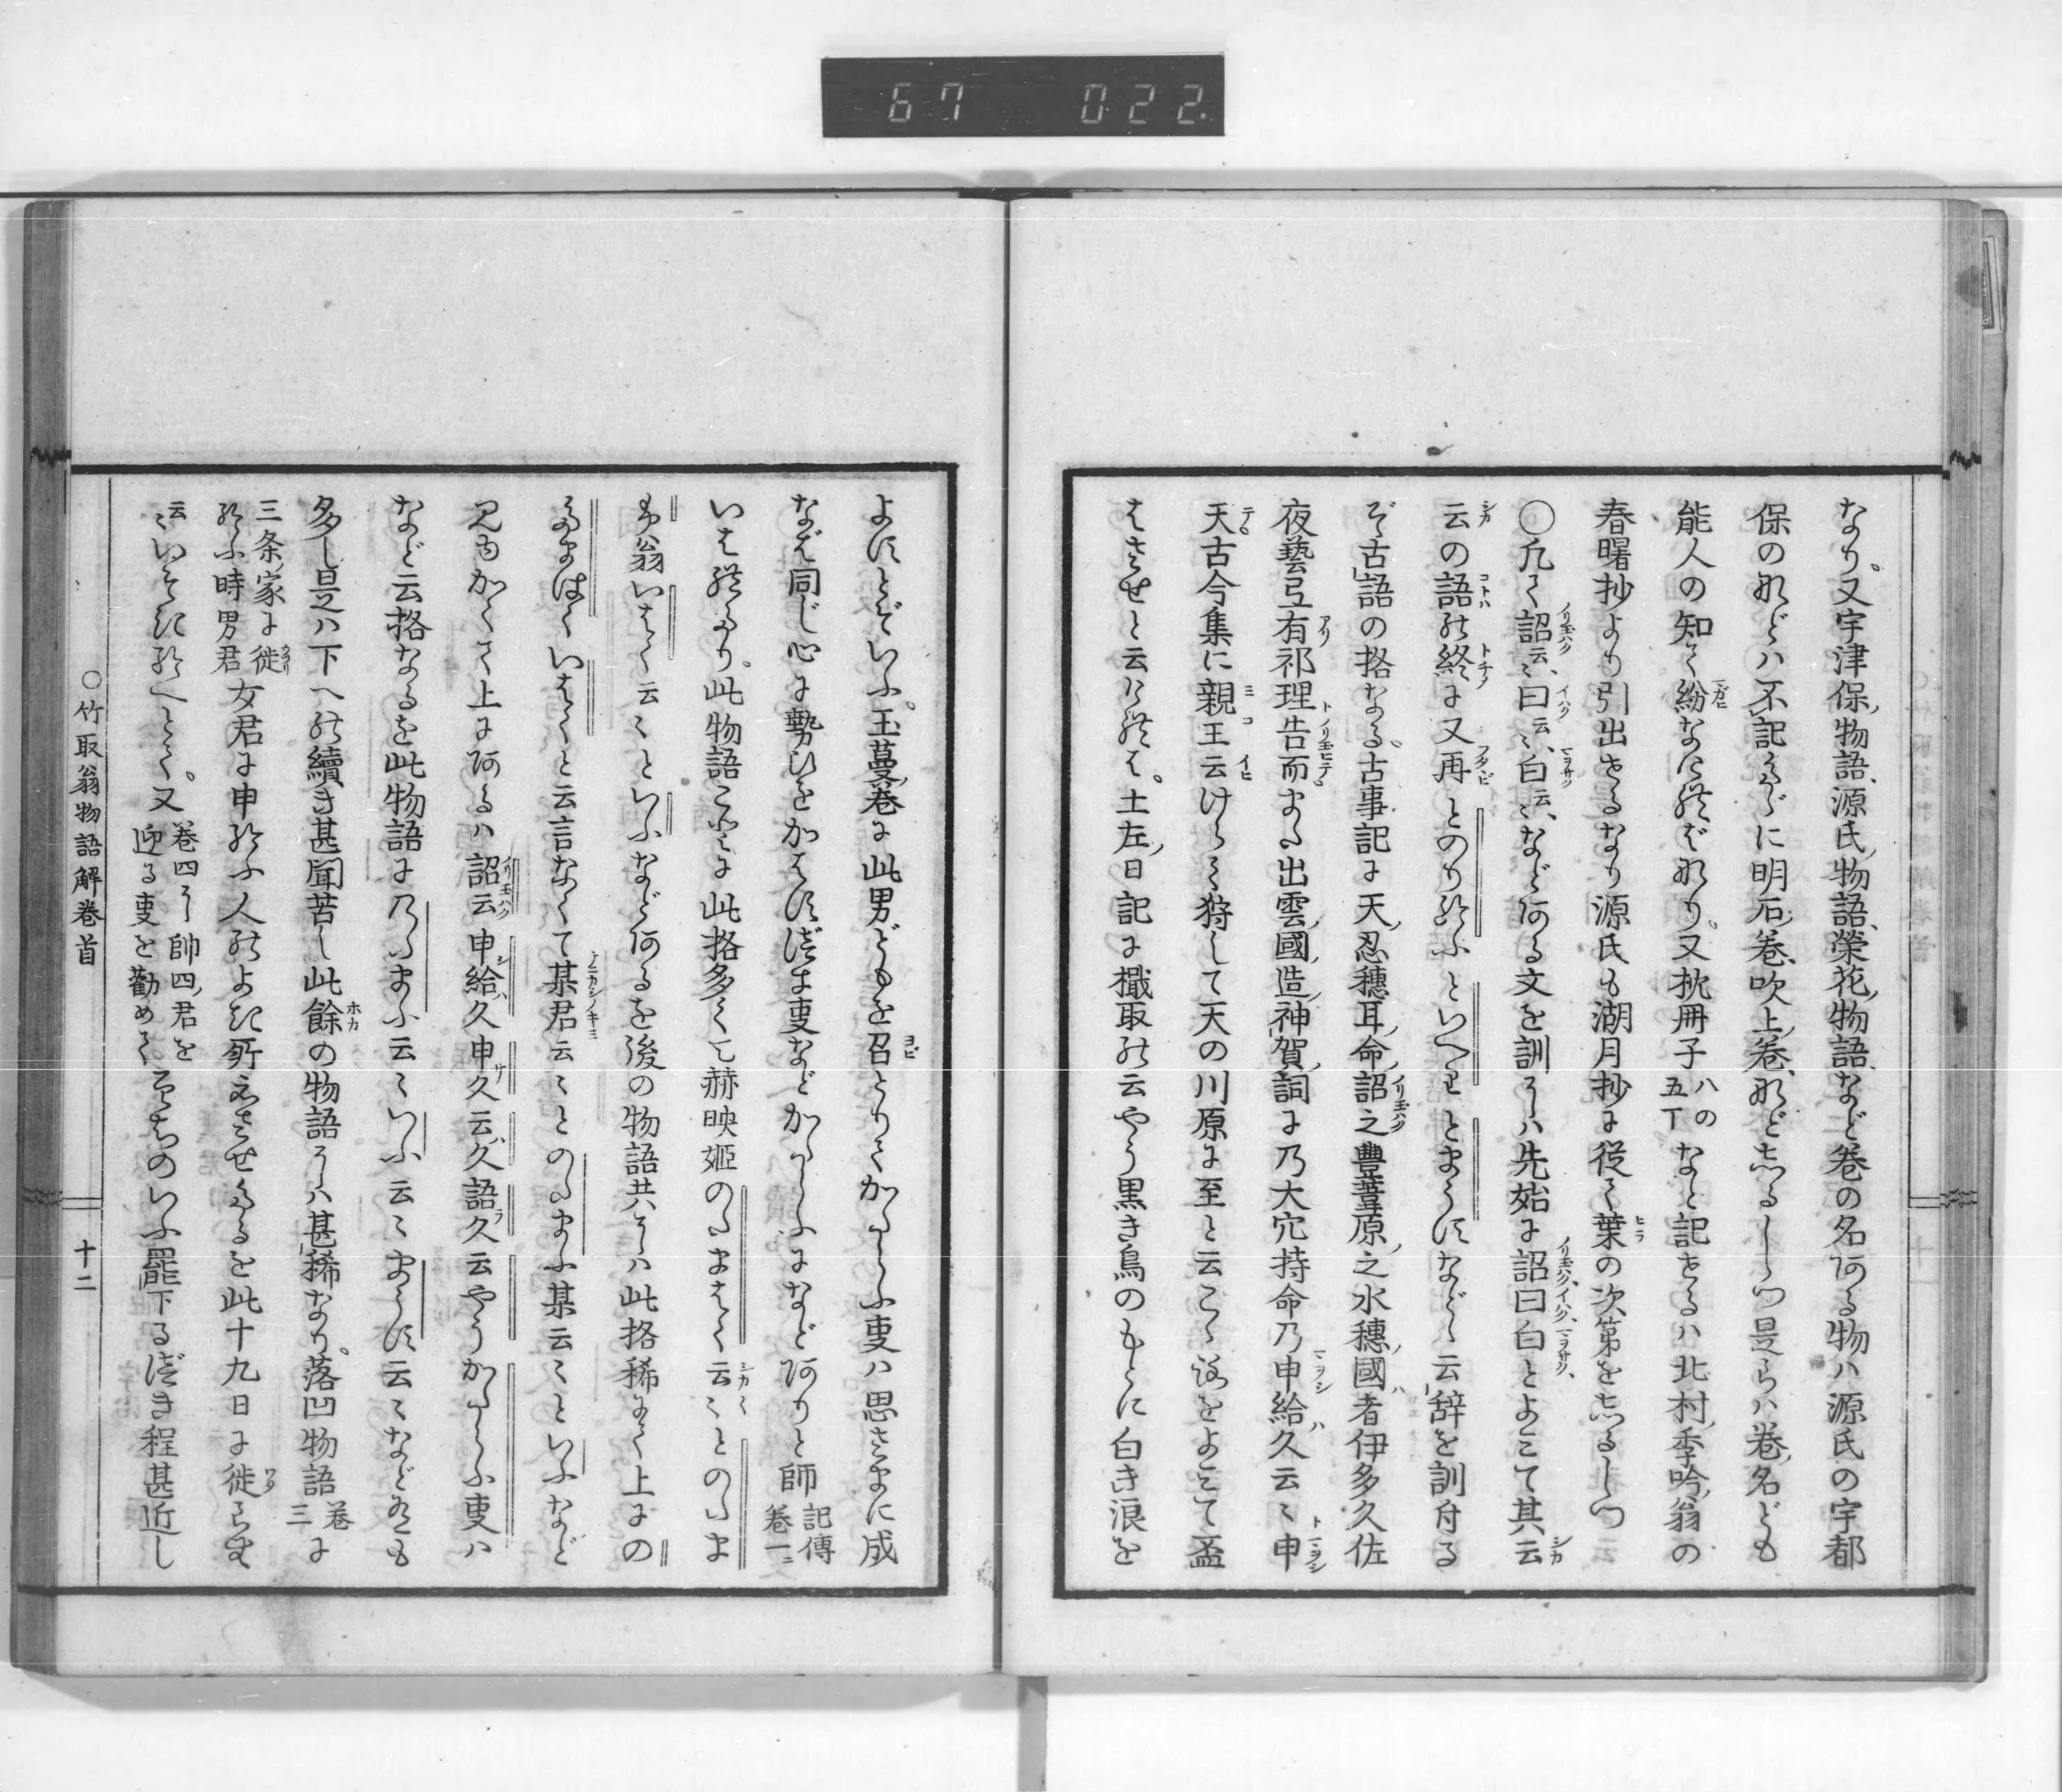 67 022.
なり。又宇津保ノ物語、源氏ノ物語、榮花ノ物語、など巻の名ある物ハ源氏の宇都
保のなどハ不記るに明石ノ巻、吹上ノ巻、などしるしつ是らハ巻ノ名ども
能人の知て紛なければなり。又枕冊子八の五丁なと記せるハ北村ノ季吟ノ翁の
春曙抄より引出せるなり源氏も湖月抄に従て葉の次第をしるしつ
○凡て詔云〻曰云〻白云〻などある文を訓にハ先始に詔曰白とよみて其云
云の語の終に又再とのり給ふといへりとまうすなどゝ云辞を訓付る
ぞ古語の格なる。古事記に天ノ忍穗耳ノ命ノ詔之豊葦原ノ之水穗ノ國者伊多久佐
夜藝弖有祁理告而また出雲ノ國ノ造ノ神賀ノ詞に乃大穴持命乃申給久云〻申
天古今集に親王云けらく狩して天の川原に至と云こゝろをよみて盃
はさせと云ければ。土左ノ日記に檝取の云やう黒き鳥のもとに白き浪を
よすとぞいふ。玉蔓ノ巻に此男どもを召とりてかたらふ叓ハ思さまに成
なば同じ心に勢ひをかはすべき叓などかたらふになどありと師記傳巻一ニ
いはれたり。此物語こゝに此格多くて赫映姫のたまはく云〻とのたま
ふ翁いはく云〻といふなどあるを後の物語共にハ此格稀にて上にの
たまはくいはくと云言なくて某君云〻とのたまふ某云〻といふなど
のみかくて上にあるハ詔云申給久申久云久語久云やうかたらふ叓ハ
など云格なるを此物語に乃たまふ云〻いふ云〻まうす云〻なども
多し是ハ下への續き甚聞苦し此餘の物語にハ甚稀なり。落凹物語巻三に
三条ノ家に徙給ふ時男君女君に申給ふ人のよき所えさせたるを此十九日に徙らむ
云〻いそぎ給へとて。又巻四に帥四ノ君を迎る叓を勸めてのいふ罷下るべき程甚近し
○竹取翁物語解巻首
十二